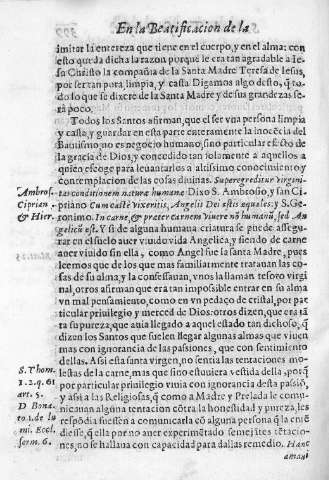 En la Beatificacion de la
imitar la entereza que tiene en el cuerpo, y en el alma: con
esto queda dicha la razon porque le era tan agradable a Ie-
su Christo la compañia de la Santa Madre Teresa de Iesus,
por ser tan pura, limpia, y casta Digamos algo desto, q̃ to-
do lo que se dixere de la Santa Madre y de sus grandezas se
rà poco.
Todos los Santos afirman, que el ser vna persona limpia
y casta, y guardar en esta parte enteramente la inocẽcia del
Bautismo, no es negocio humano, sino particular efecto de
la gracia de Dios, y concedido tan solamente a aquellos a
quien escoge para leuantarlos a altissimo conocimiento y
contemplacion de las cosas diuinas. Supergreditur virgini-
Ambros. tas conditionem naturæ humanæ Dixo S. Ambrosio, y san Ci-
Ciprien. priano Cum castè vixeritis, Angelis Dei estis æquales; y S. Ge-
& Hier. ronimo. In carne, & præter carnem viuere nõ humanũ, sed An-
gelicũ est. Y si de alguna criatura humana se puede assegu-
rar en el suelo auer viuido vida Angelica, y siendo de carne
auer viuido sin ella, como Angel fue la santa Madre, pues
leemos que de los que mas familiarmente trataron las co-
sas de su alma, y la confessauan, vnos la llaman tesoro virgi
nal, otros afirman que era tan impossible entrar en su alma
vn mal pensamiento, como en vn pedaço de cristal, por par
ticular priuilegio y merced de Dios: otros dizen, que era tã
ta su pureza, que auia llegado a aquel estado tan dichoso, q̃
dizen los Santos que suelen llegar algunas almas que viuen
mas con ignorancia de las passiones, que con sentimiento
dellas. Assi esta santa virgen, no sentia las tentaciones mo-
S. Thom. lestas de la carne, mas que sino estuuiera vestida della, porq̃
1. 2. q. 61 por particular priuilegio viuia con ignorancia desta passiõ,
art. 5. y assi a las Religiosas, q̃ como a Madre y Prelada le comu-
D Bona. nicauan alguna tentacion cõtra la honestidad y pureza, les
to. 1. de lu respõdia fuessen a comunicarla cõ alguna persona q̃ la entẽ
mi. Eccl. diesse, q̃ ella por no auer experimẽtado semejãtes tẽtacio-
serm. 6. nes, no se hallaua con capacidad para dallas remedio. Hanc
amaui